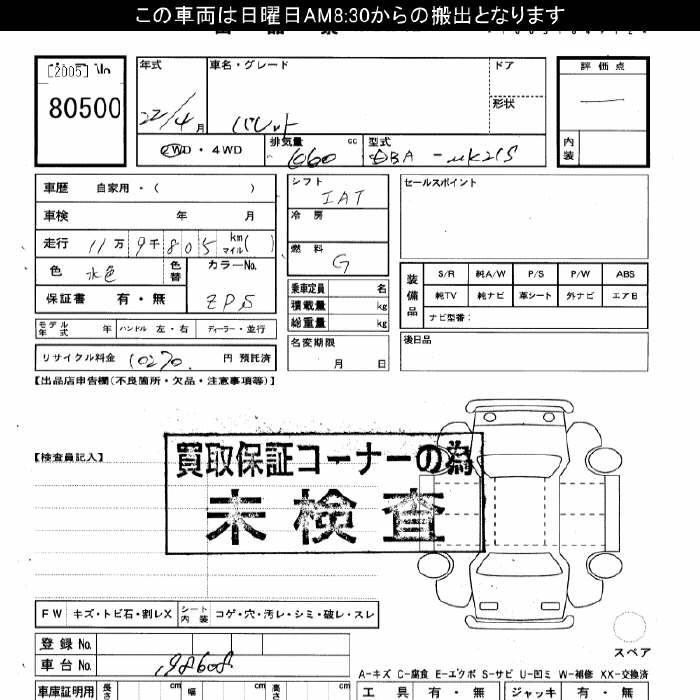 この車両は日曜日AM8:30からの搬出となります
[2005]
80500
年式
22/4月
車名・グレード
パレット
ドア
形状
2WD・4WD
排気量 660 cc
型式 DBA-MK21S
評価点
内装
車歴 自家用・( )
車検 年 月
走行 11万9千805 km マイル( )
色 水色 色替
カラーNo. ZPS
保証書 有・無
モデル年式 年 ハンドル 左・右 ディーラー・並行
リサイクル料金 10270 円 預託済
シフト IAT
冷房
燃料 G
乗車定員 名
積載量 kg
総重量 kg
名変期限 月 日
セールスポイント
装備品
S/R 純A/W P/S P/W ABS
純TV 純ナビ 革シート 外ナビ エアB
ナビ型番:
後日品
【出品店申告欄(不良箇所・欠品・注意事項等)】
【検査員記入】
買取保証コーナーの為
未検査
FW キズ・トビ石・割レX シート内装 コゲ・穴・汚レ・シミ・破レ・スレ
登録No.
車台No. 198608
スペア
A-キズ C-腐食 E-エクボ S-サビ U-凹ミ W-補修 XX-交換済
車庫証明用 長さ cm 幅 cm 高さ cm
工具 有・無 ジャッキ 有・無